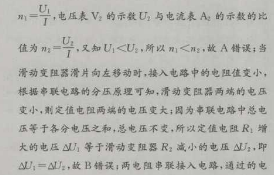 n₁=U₁/I,电压表 V₂ 的示数 U₂ 与电流表 A₂ 的示数的比
值为 n₂=U₂/I,又知 U₁<U₂,所以 n₁<n₂,故 A 错误;当
滑动变阻器滑片向左移动时,接入电路中的电阻值变小,
根据串联电路的分压原理可知,滑动变阻器两端的电压
变小,则定值电阻两端的电压变大;因为串联电路中总电
压等于各分电压之和,总电压不变,所以定值电阻 R₁ 增
大的电压 ΔU₁ 等于滑动变阻器 R₂ 减小的电压 ΔU₂,即
ΔU₁=ΔU₂,故 B 错误;两电阻串联接入电路,通过的电